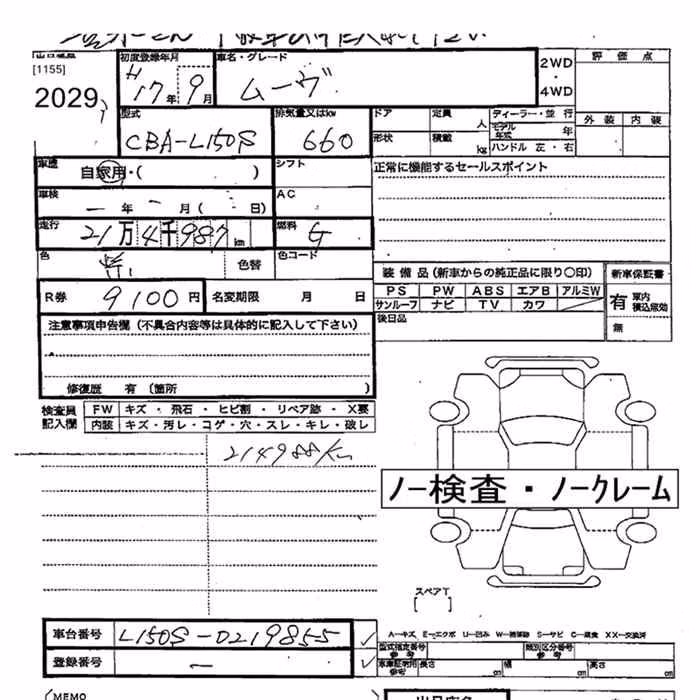 出品番号 初度登録年月 車名・グレード 2WD ・ 4WD 評価点
[1155] H
2029 17年 9月 ムーヴ
型式 排気量又はkw ドア 定員 人 ディーラー・並行 外装 内装
CBA-L150S 660 形状 積載 kg モデル年式 年
ハンドル 左・右
車歴 自家用・( ) シフト 正常に機能するセールスポイント
車検 ー年 ー月( 日) AC
走行 21万4千987km 燃料 G
色 色替 色コード 装備品(新車からの純正品に限り○印) 新車保証書
R券 9100円 名変期限 月 日 PS PW ABS エアB アルミW 有 車内積込無効
サンルーフ ナビ TV カワ 無
注意事項申告欄(不具合内容等は具体的に記入して下さい) 後日品
修復歴 有 (箇所 )
検査員記入欄 FW キズ・飛石・ヒビ割・リペア跡・X要
内装 キズ・汚レ・コゲ・穴・スレ・キレ・破レ
214988km
ノー検査・ノークレーム
スペアT
[ ]
車台番号 L150S-0219855 ✓ A-キズ E-エクボ U-凹み W-補修跡 S-サビ C-腐食 XX-交換済
型式指定番号 参考 類別区分番号 参考
登録番号 ー ✓ 車庫証明用 参考 長さ cm 幅 cm 高さ cm
(MEMO 出品店名